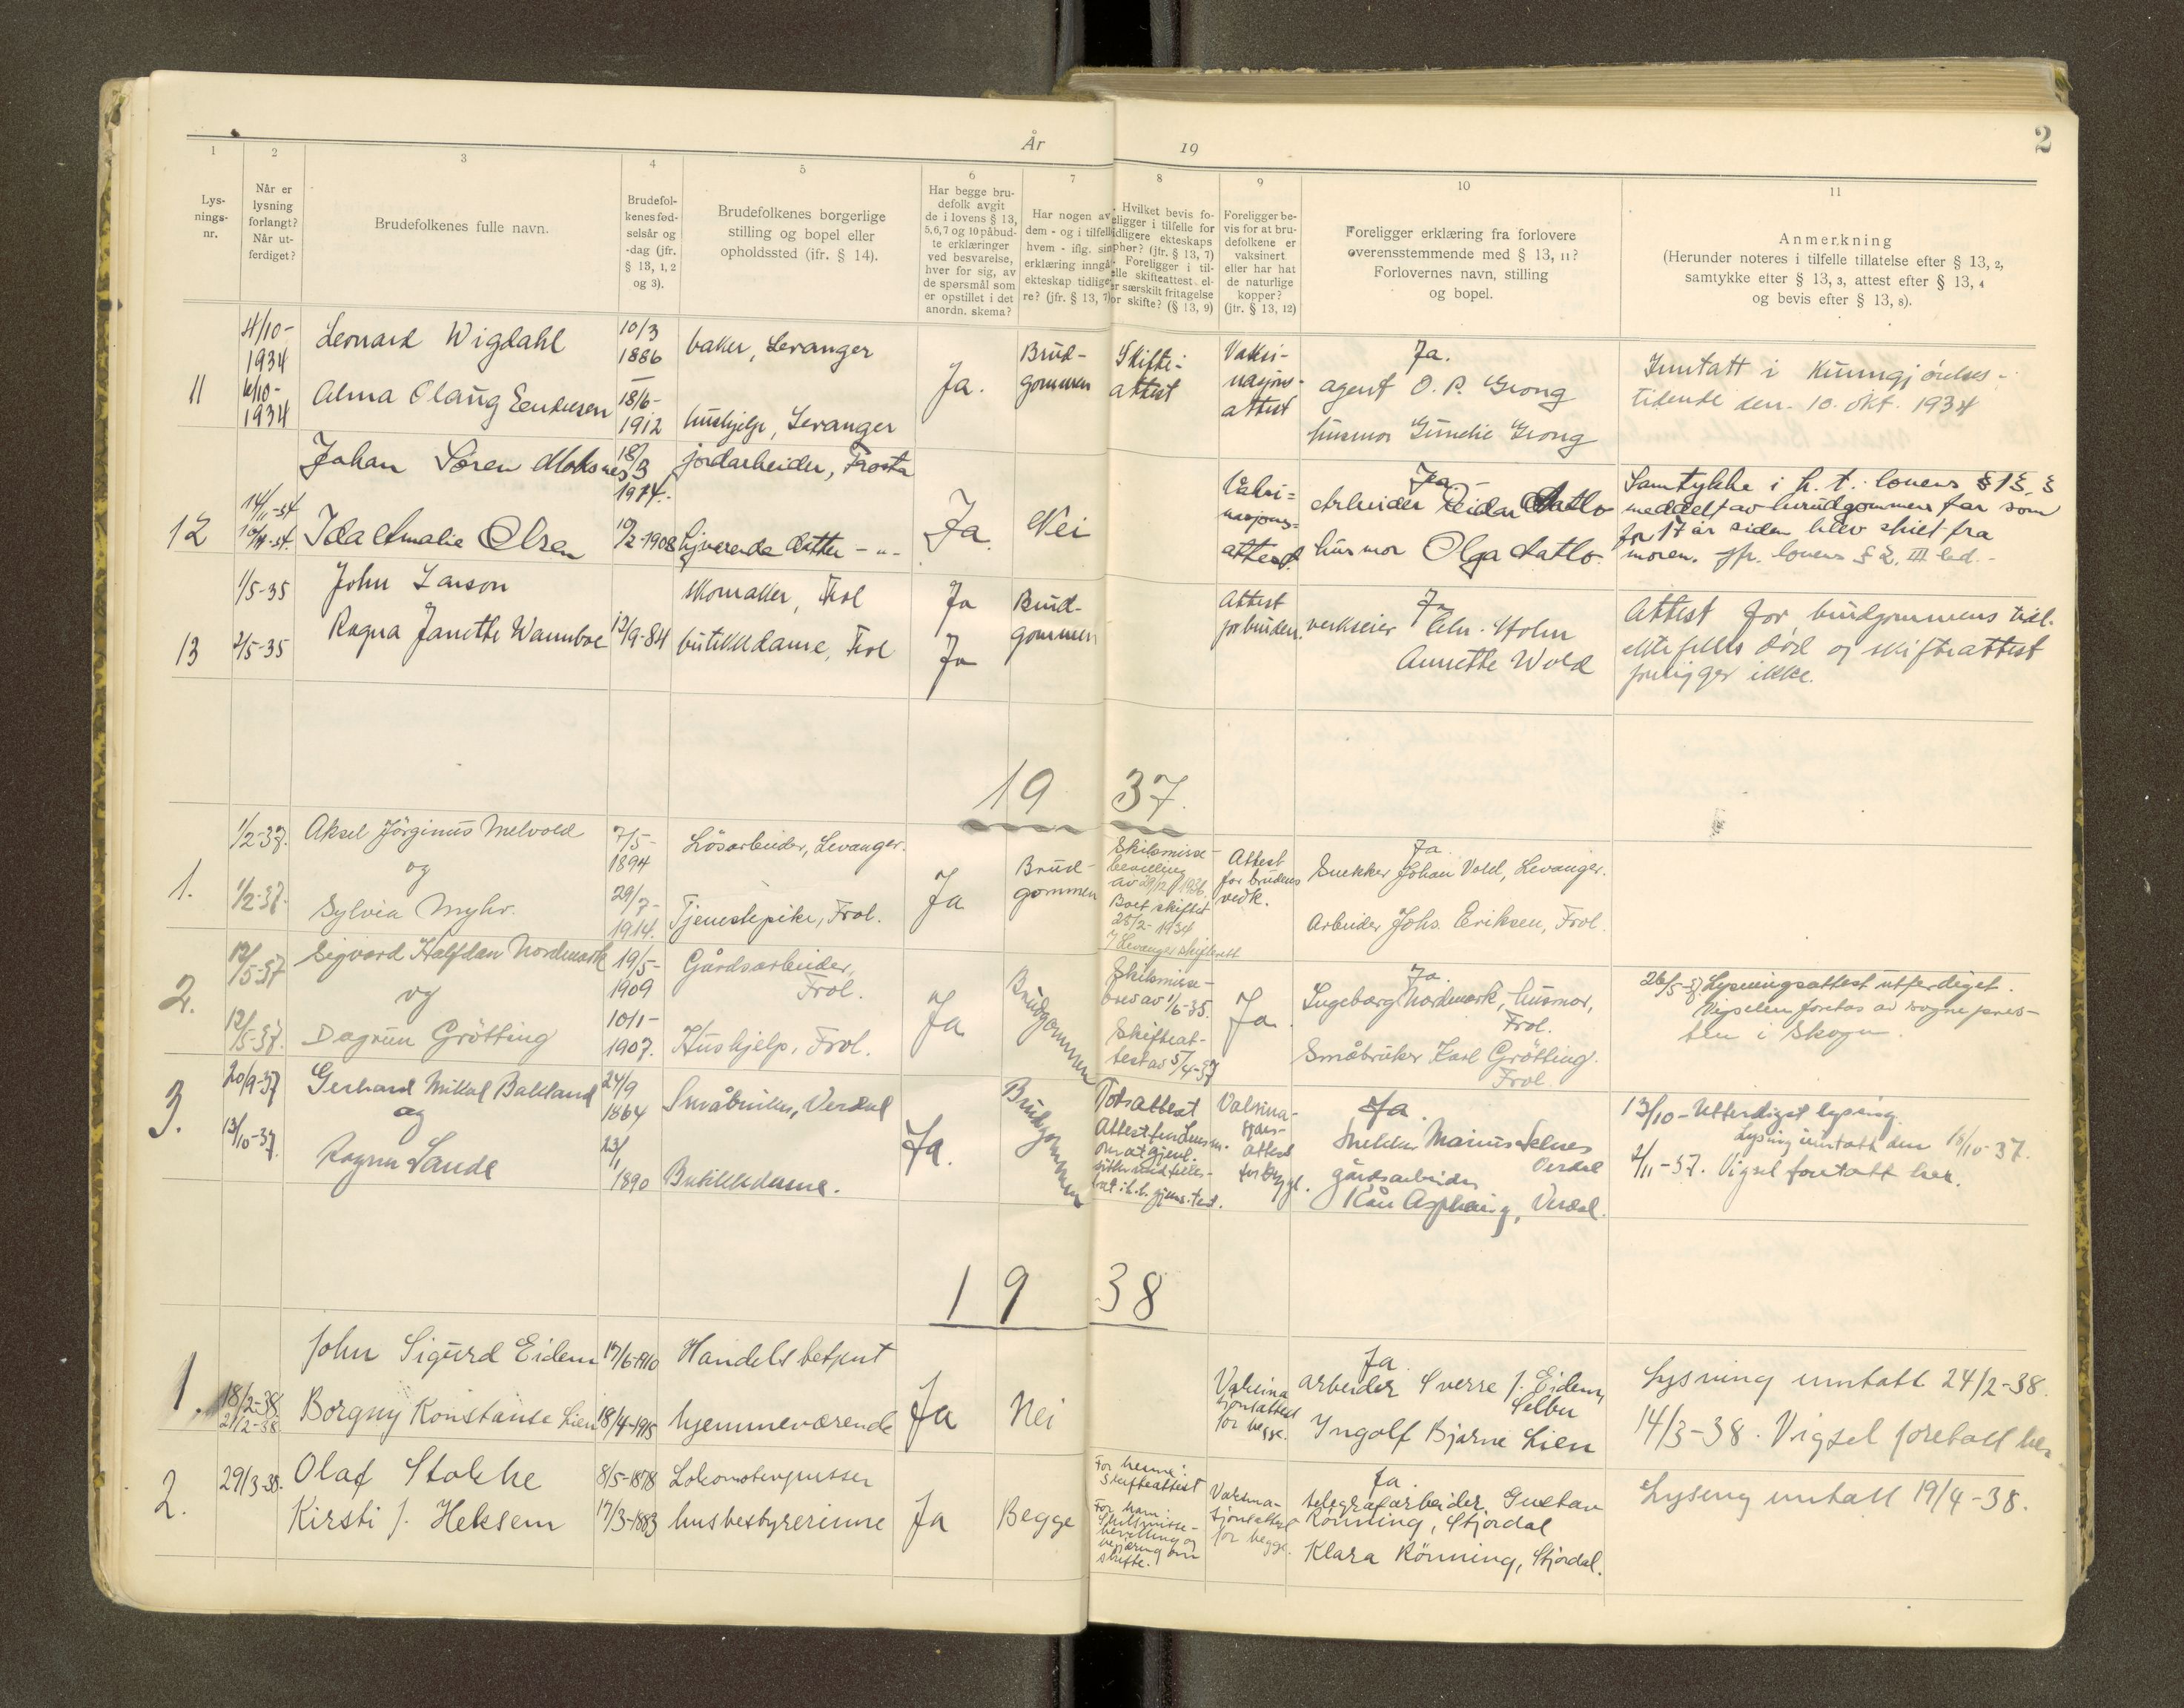 År 19
2
1
2
3
4
5
6
7
8
9
10
11
Lys-
nings-
nr.
Når er
lysning
forlangt?
Når ut-
ferdiget?
Brudefolkenes fulle navn.
Brudefol-
kenes fød-
selsår og
-dag (jfr.
§ 13, 1, 2
og 3).
Brudefolkenes borgerlige
stilling og bopel eller
opholdssted (jfr. § 14).
Har begge bru-
defolk avgit
de i lovens § 13,
5, 6, 7 og 10 påbud-
te erklæringer
ved besvarelse,
hver for sig, av
de spørsmål som
er opstillet i det
anordn. skema?
Har nogen av
dem - og i tilfelle
hvem - iflg. sin
erklæring inngå
ekteskap tidlige-
re? (jfr. § 13, 7)
Hvilket bevis fo-
religger i tilfelle for
tidligere ekteskaps
ophør? (jfr. § 13, 7)
Foreligger i til-
felle skifteattest el-
er særskilt fritagelse
for skifte? (§ 13, 9)
Foreligger be-
vis for at bru-
defolkene er
vaksinert
eller har hat
de naturlige
kopper?
(jfr. § 13, 12)
Foreligger erklæring fra forlovere
overensstemmende med § 13, 11?
Forlovernes navn, stilling
og bopel.
Anmerkning
(Herunder noteres i tilfelle tillatelse efter § 13, 2,
samtykke efter § 13, 3, attest efter § 13, 4
og bevis efter § 13, 8).
11
4/10-
1934
6/10-
1934
Leonard Wigdahl
Alma Olaug
10/3
1886
18/6-
1912
baker, Levanger
hushjelp, Levanger
Ja.
Brud-
gommen
Skifte-
attest
Vaksi-
nasjons-
attest
Ja.
agent O. P. Grong
husmor Gundie Grong
Inntatt i Kunngjørelses-
tidende den. 10. okt. 1934
12
14/11-34
Johan Sören Moksnes
Ida Amalie Olsen
18/3
1914.
10/2-1908
jordarbeider, Frosta
hjverende datter - " -
Ja.
Nei
Vaksi-
nasjons-
attest
Ja.
Arbeider Reidar Aatlo
husmor Olga Aatlo.
Samtykke i h. t. lovens § 13. 3
meddelt av brudgommens far som
for 17 år siden blev skilt fra
moren. jfr. lovens § 2, III led.
13
1/5-35
2/5-35
John Larson
Ragna Janette Wannboe
12/9-84
skomaker, Frol
butikkdame, Frol
Ja
Ja
Brud-
gommen
Attest
for bruden.
Ja
verkseier Chr. Holm
Annette Wold
Attest for brudgommens tidl.
ektefelles død og skifteattest
foreligger ikke.
19 37.
1.
1/2-37.
1/2-37.
Aksel Jörginus Melvold
og
Sylvia Myhr.
7/5-
1894
29/7-
1914.
Lösarbeider, Levanger.
Tjenestepike, Frol.
Ja
Brud-
gommen
Skilsmisse-
bevilling
av 29/12 1936.
Boet skiftet
25/2-1934
i Levanger skifterett
Attest
for brudens
vedk.
Ja
Snekker Johan Vold, Levanger.
Arbeider Johs. Eriksen, Frol.
2.
12/5-37
12/5-37.
Sigvard Halfdan Nordmark
og
Dagrun Grötting
19/5-
1909
10/1-
1907.
Gårdsarbeider,
Frol.
Hushjelp, Frol.
Ja
Brudgommen
Skilsmisse-
brev av 1/6-35.
Skifteat-
test av 5/4-37
Ja
Ja.
Ingeborg Nordmark, husmor,
Frol.
Småbruker Karl Grötting.
Frol.
26/5-37. Lysningsattest utferdiget.
Vigselen foretas av sogneprest-
ten i Skogn.
3.
20/9-37
13/10-37.
Gerhard Mikal Bakland
og
Ragna Sande
24/9
1864
23/1
1890
Småbruker, Verdal
Butikkdame.
Ja.
Brudgommen
Dödsattest
Attest fra Lensm.
om at gjenl.
Vaksina-
sjons-
attest
for begge.
Ja.
Snekker Marius Selnes
Verdal
gårdsarbeider
Kåre Asphaug, Verdal.
13/10- Utferdiget lysning.
Lysning inntatt den 16/10-37.
2/11-37. Vigsel foretatt her.
19 38
1.
18/2-38
21/2-38
John Sigurd Eidem
Borgny Konstanse Lien
17/6-1910
18/4-1915
Handelsbetjent
hjemmeværende
Ja
Nei
Vaksina
sjonsattest
for begge.
Ja.
arbeider Sverre J. Eidem,
Selbu
Ingolf Bjarne Lien
Lysning inntatt 24/2-38.
14/3-38. Vigsel foretatt her
2.
29/3-38.
Olaf Stokke
Kirsti J. Heksem
8/5-1878
17/3-1883
Lokomotivpusser
husbestyrerinne
Ja
Begge
For henne:
Skifteattest
For ham
Skilsmisse-
bevilling og
erklæring om
skifte.
Vaksina-
sjonsattest
for begge.
Ja.
telegrafarbeider Gustav
Rönning, Stjördal
Klara Rönning, Stjördal.
Lysning inntatt 19/4-38.